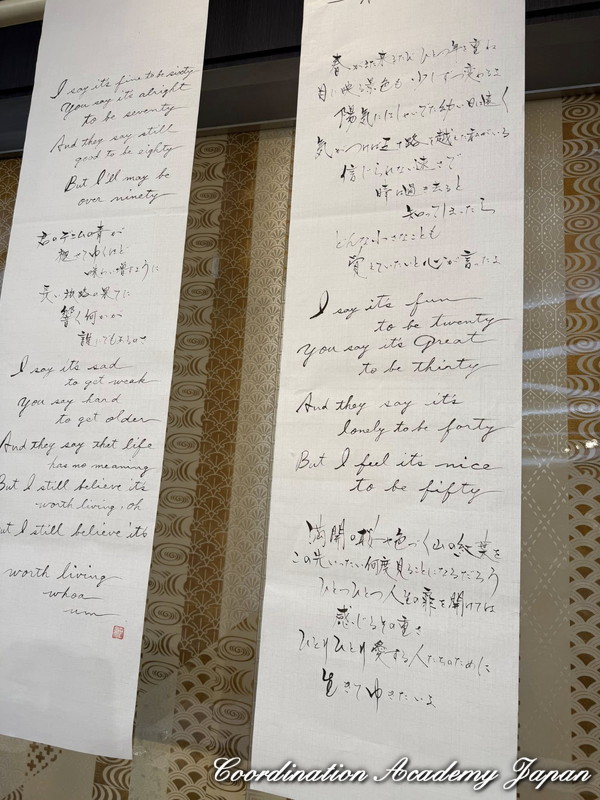 春がまた来るたび ひとつ年を重ね
目に映る景色も 少しずつ変わるよ
陽気にはしゃいでた幼い日は遠く
気がつけば五十路を越えた私がいる
信じられない速さで
時は過ぎ去ると
知ってしまったら
どんな小さなことも
覚えていたいと心が言ったよ
I say it's fun
to be twenty
You say it's Great
to be thirty
And they say it's
lonely to be forty
But I feel it's nice
to be fifty
満開の桜や色づく山の紅葉を
この先いったい何度見ることになるだろう
ひとつひとつ人生の扉を開けては
感じるその重さ
ひとりひとり愛する人たちのために
生きてゆきたいよ
I say it's fine to be sixty
You say it's alright
to be seventy
And they say still
good to be eighty
But I'll may be
over ninety
君のデニムの青が
褪せてゆくほど
味わい増すように
長い旅路の果てに
輝く何かが
誰にでもあるさ
I say it's sad
to get weak
You say hard
to get older
And they say that life
has no meaning
But I still believe it's
worth living, oh
But I still believe it's
worth living
whoa
um
Coordination Academy Japan